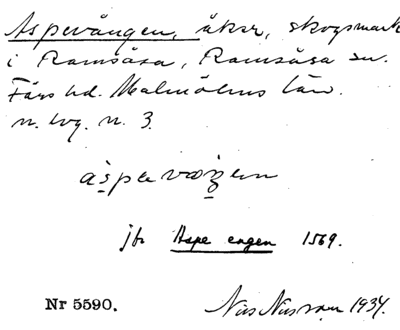 Aspevången, åker, skogsmark
i Ramsåsa, Ramsåsa sn.
Färs hd. Malmöhus län.
n. bg. n. 3.
jfr Aspe engen 1569.
Nr 5590. Nils Nilsson 1934.